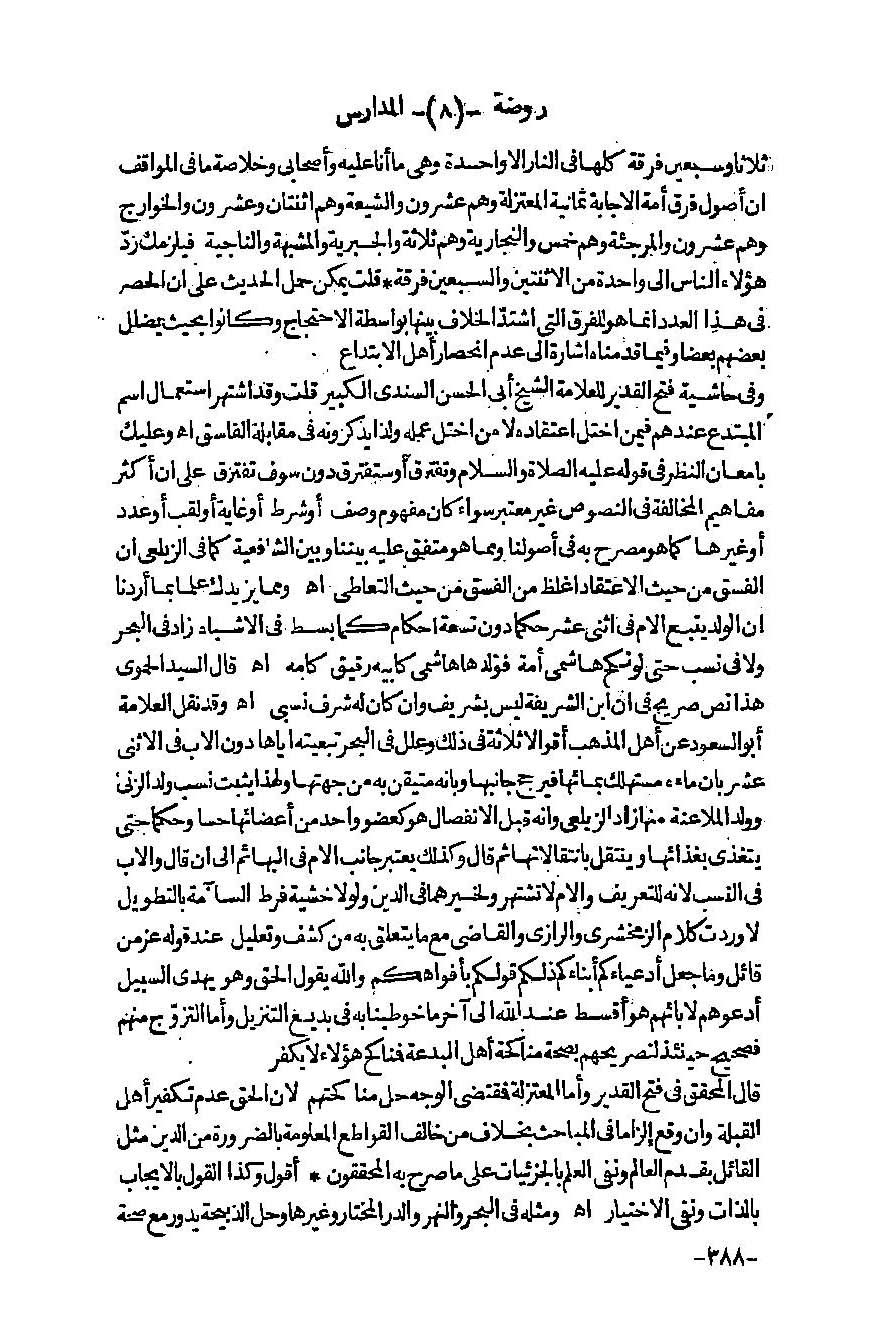 روضة -(٨)- المدارس
ثلاثا وسبعين فرقة كلها فى النار الا واحدة وهى ما أنا عليه وأصحابى وخلاصة ما فى المواقف
ان أصول فرق أمة الاجابة ثمانية المعتزلة وهم عشرون والشيعة وهم اثنتان وعشرون والخوارج
وهم عشرون والمرجئة وهم خمس والنجارية وهم ثلاثة والجبرية والمشبهة والناجية فيلزمك ردّ
هؤلاء الناس الى واحدة من الاثنتين والسبعين فرقة * قلت يمكن حمل الحديث على ان الحصر
فى هذا العدد انما هو للفرق التى اشتدّ الخلاف بينها بواسطة الاحتجاج وكانوا بحيث يضلل
بعضهم بعضا وفيما قدمناه اشارة الى عدم انحصار أهل الابتداع
وفى حاشية فتح القدير للعلامة الشيخ أبى الحسن السندى الكبير قلت وقد اشتهر استعمال اسم
المبتدع عندهم فيمن اختل اعتقاده لا من اختل عمله ولذا يذكرونه فى مقابلة الفاسق اه وعليك
بامعان النظر فى قوله عليه الصلاة والسلام وتفترق أو ستفترق دون سوف تفترق على ان أكثر
مفاهيم المخالفة فى النصوص غير معتبر سواء كان مفهوم وصف أو شرط أو غاية أو لقب أو عدد
أو غيرها كما هو مصرح به فى أصولنا ومما هو متفق عليه بيننا وبين الشافعية كما فى الزيلعى ان
الفسق من حيث الاعتقاد اغلظ من الفسق من حيث التعاطى اه ومما يزيدك علما بما أردنا
ان الولد يتبع الام فى اثنى عشر حكما دون تسعة احكام كما بسط فى الاشباه زاد فى البحر
ولا فى نسب حتى لو نكح هاشمى أمة فولدها هاشمى كابيه رقيق كامه اه قال السيد الحموى
هذا نص صريح فى ان ابن الشريفة ليس بشريف وان كان له شرف نسبى اه وقد نقل العلامة
أبو السعود عن أهل المذهب أقوالا ثلاثة فى ذلك وعلل فى البحر تبعيته اياها دون الاب فى الاثنى
عشر بان ماءه مستهلك بمائها فيرجح جانبها وبانه متيقن به من جهتها ولهذا يثبت نسب ولد الزنى
وولد الملاعنة منها زاد الزيلعى وانه قبل الانفصال هو كعضو واحد من أعضائها حسا وحكما حتى
يتغذى بغذائها وينتقل بانتقالاتها ثم قال وكذلك يعتبر جانب الام فى البهائم الى ان قال والاب
فى النسب لانه للتعريف والام لا تشتهر ولخيرهما فى الدين ولولا خشية فرط السآمة بالتطويل
لاوردت كلام الزمخشرى والرازى والقاضى مع ما يتعلق به من كشف وتعليل عند قوله عز من
قائل وما جعل أدعياءكم أبناءكم ذلكم قولكم بأفواهكم والله يقول الحق وهو يهدى السبيل
أدعوهم لابائهم هو أقسط عند الله الى آخر ما خوطبنا به فى بديع التنزيل وأما التزوّج منهم
فصحيح حينئذ لتصريحهم بصحة مناكحة أهل البدعة فناكح هؤلاء لا يكفر
قال المحقق فى فتح القدير وأما المعتزلة فقتضى الوجه حل مناكحتهم لان الحق عدم تكفير أهل
القبلة وان وقع إلزاما فى المباحث بخلاف من خالف القواطع المعلومة بالضرورة من الدين مثل
القائل بقدم العالم ونفى العلم بالجزئيات على ما صرح به المحققون * أقول وكذا القول بالايجاب
بالذات ونفى الاختيار اه ومثله فى البحر والنهر والدر المختار وغيرها وحل الذبيحة يدور مع صحة
-٣٨٨-